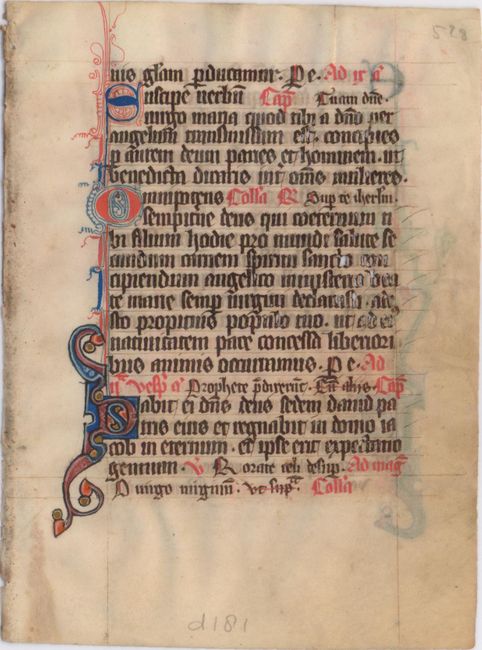 528
uis gl̃am p̱ducamur. P̱ e. Ad ix a͂
Suscipe uerbũ Cap̃ Tuam dñe.
uirgo maria quod tibi a dño per
angelum transmissum est. concipies
p aurem deum paries et hominem. ut
benedicta dicaris int̾ om̃s mulieres.
Omnipotens Coll̃a R̸ Sup̱ te iherl̃m.
sempiterne deus qui coeternum ti
bi filium hodie pro mundi salute se
cundum carnem spiritu sancto con
cipiendum angelico ministerio bea
te marie semp̱ uirgini declarasti. ade
sto propitius pop̱ulo tuo. ut ad ei
natiuitatem pace concessa liberiori
bus animis occurramus. P̱ e. Ad
ii.ᵃ Vesp̱ a͂ Prophete p̱dixerũt. Cũ aliis. Cap̃
Dabit ei dñs deus sedem dauid pa
tris eius et regnabit in domo ia
cob in eternum. et ipse erit expectatio
gentium. V̸ R orate celi desup̱. Ad mag̃
O uirgo uirginũ. ut supᵃ. Coll̃a
d181